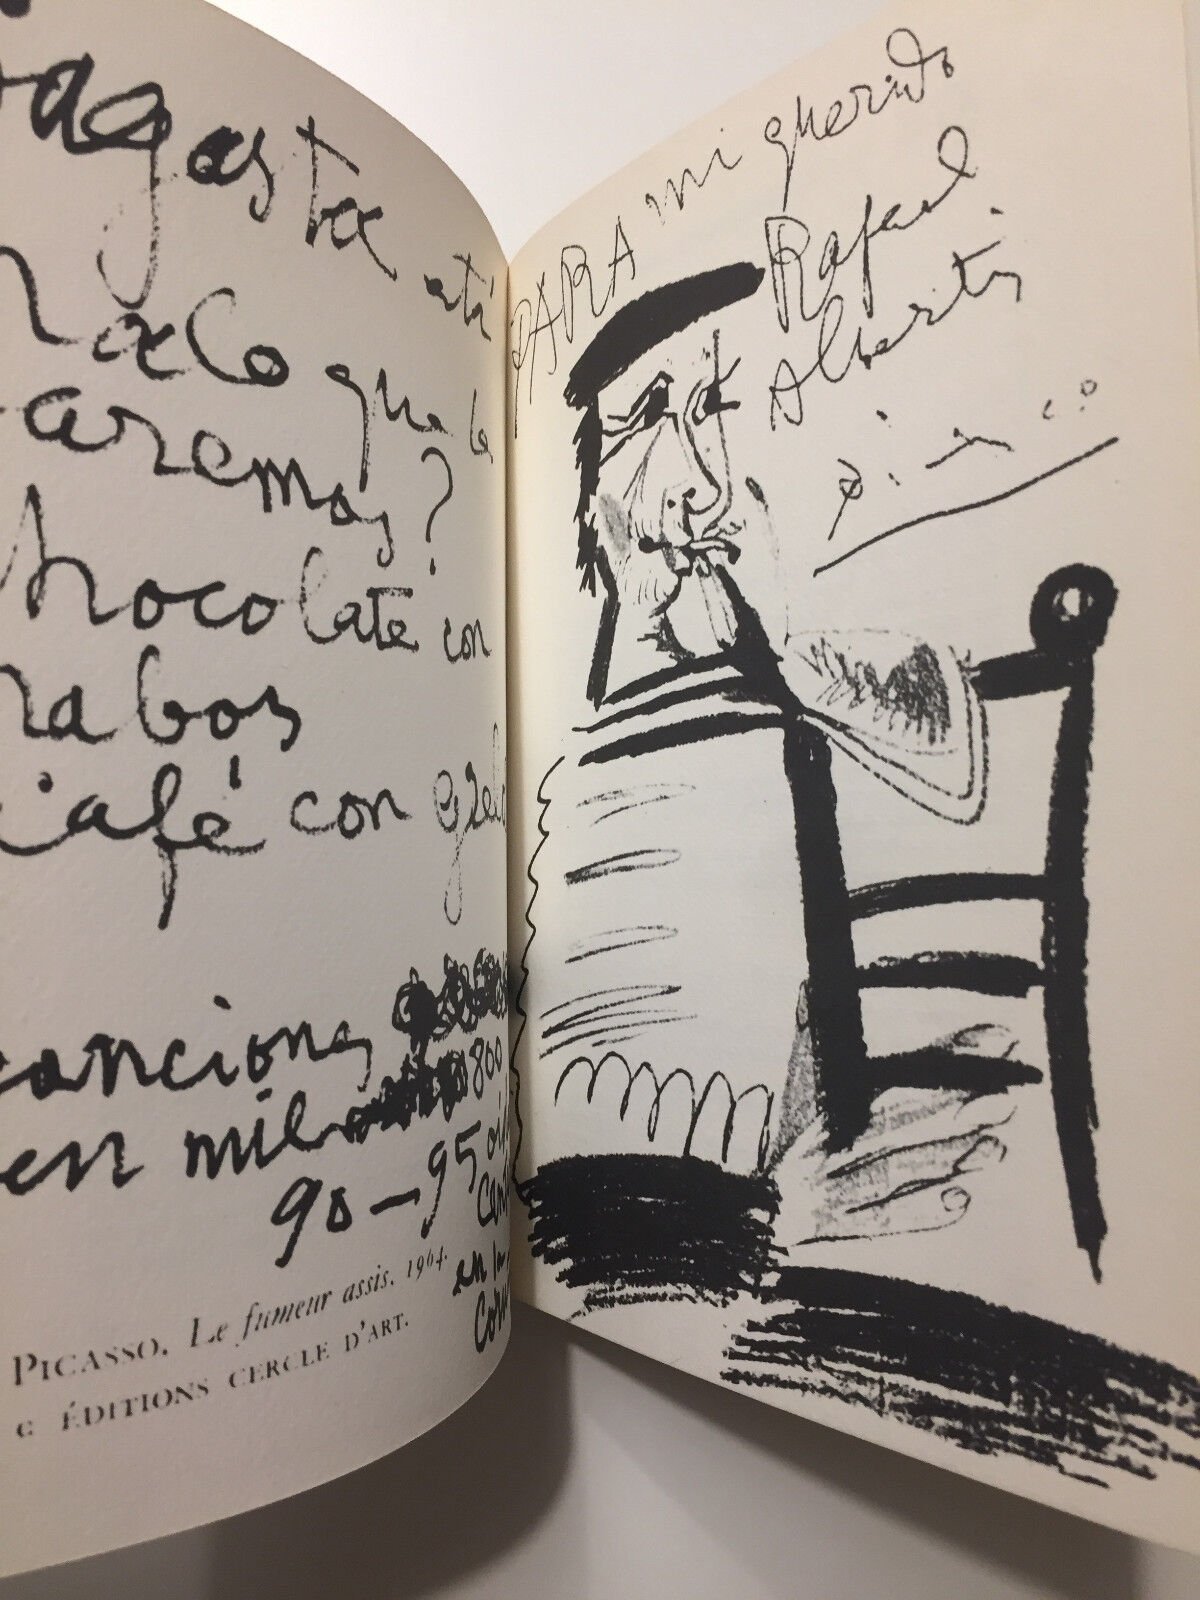 sagasta está
malo que le
daremos?
chocolate con
nabos
café con
canciones
en mil 800
90—95
en la
PICASSO, Le fumeur assis, 1964.
c ÉDITIONS CERCLE D'ART.
PARA mi querido
Rafael
Alberti